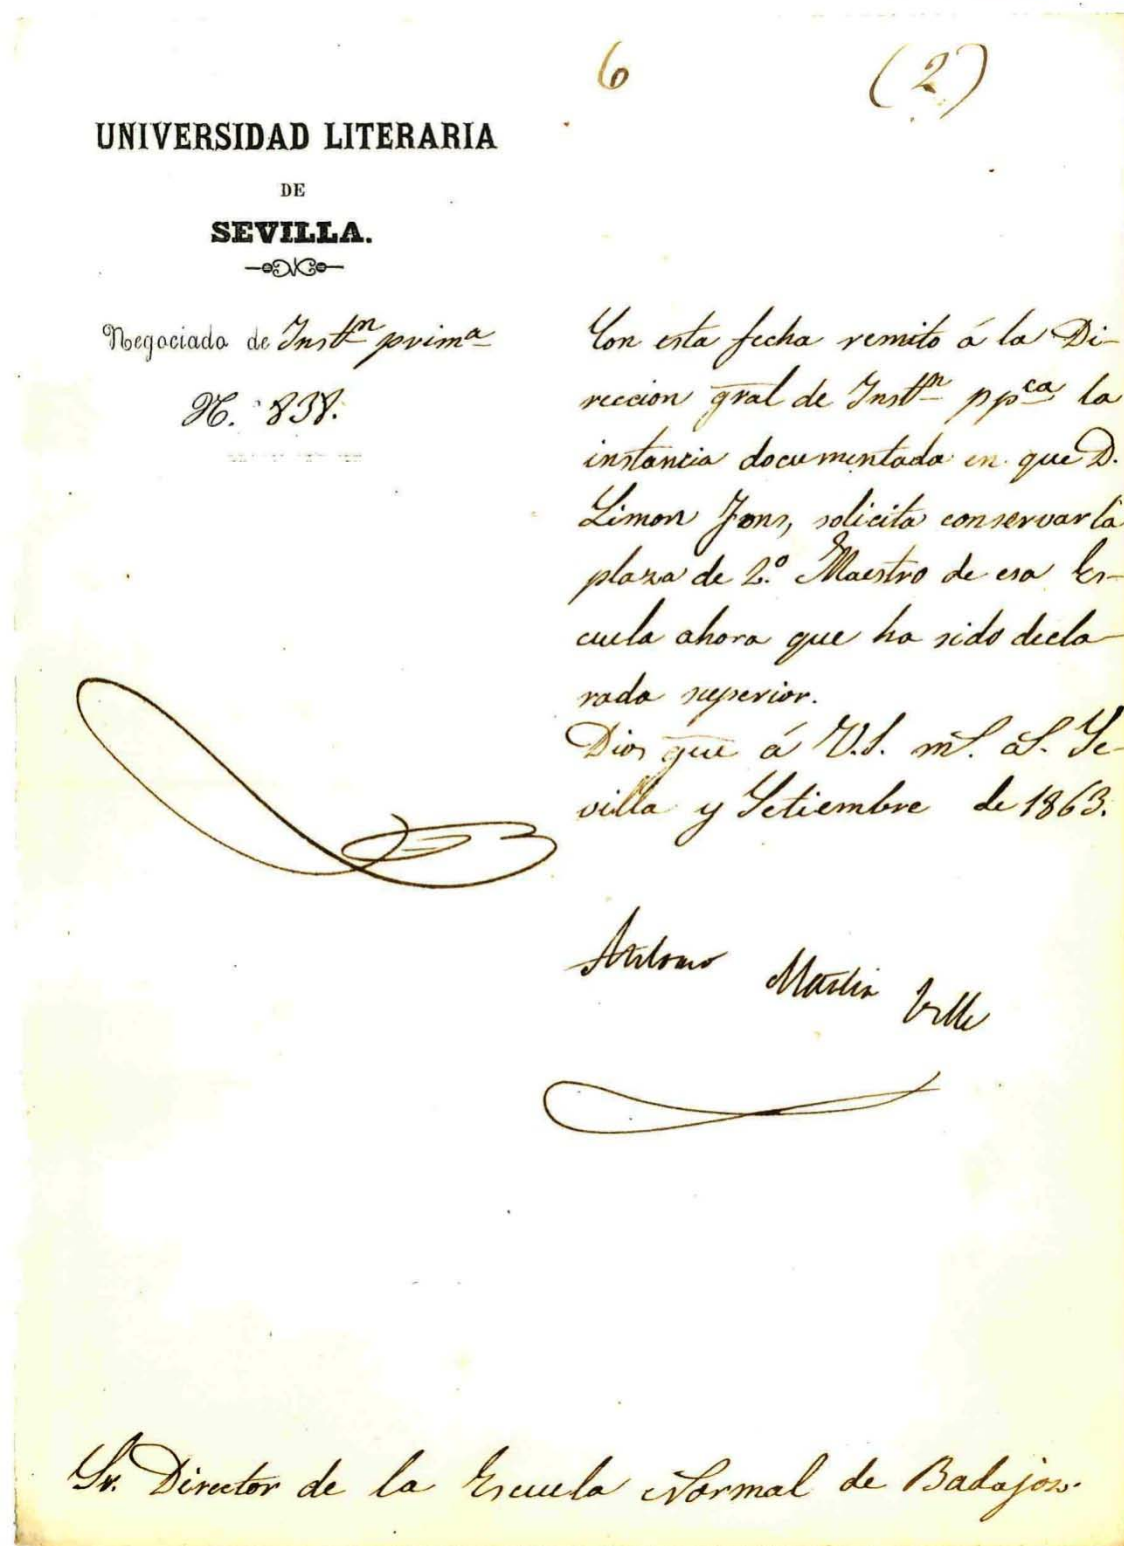 6 (2)
UNIVERSIDAD LITERARIA
DE
SEVILLA.
Negociado de Instn prima
N. 838.
Con esta fecha remito á la Di-
reccion gral de Instn ppca la
instancia documentada en que D.
Simon Fons, solicita conservar la
plaza de 2.º Maestro de esa Es-
cuela ahora que ha sido decla-
rada superior.
Dios gue á V.S. ms. as. Se-
villa y Setiembre de 1863.
Antonio Martin Villa
Sr. Director de la Escuela Normal de Badajoz.